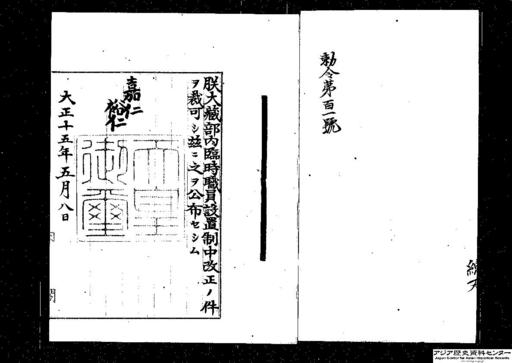 勅令第百一號
朕大藏部内臨時職員設置制中改正ノ件
ヲ裁可シ茲ニ之ヲ公布セシム
嘉仁
裕仁
天皇御璽
大正十五年五月八日
内閣
アジア歴史資料センター
Japan Center for Asian Historical Records